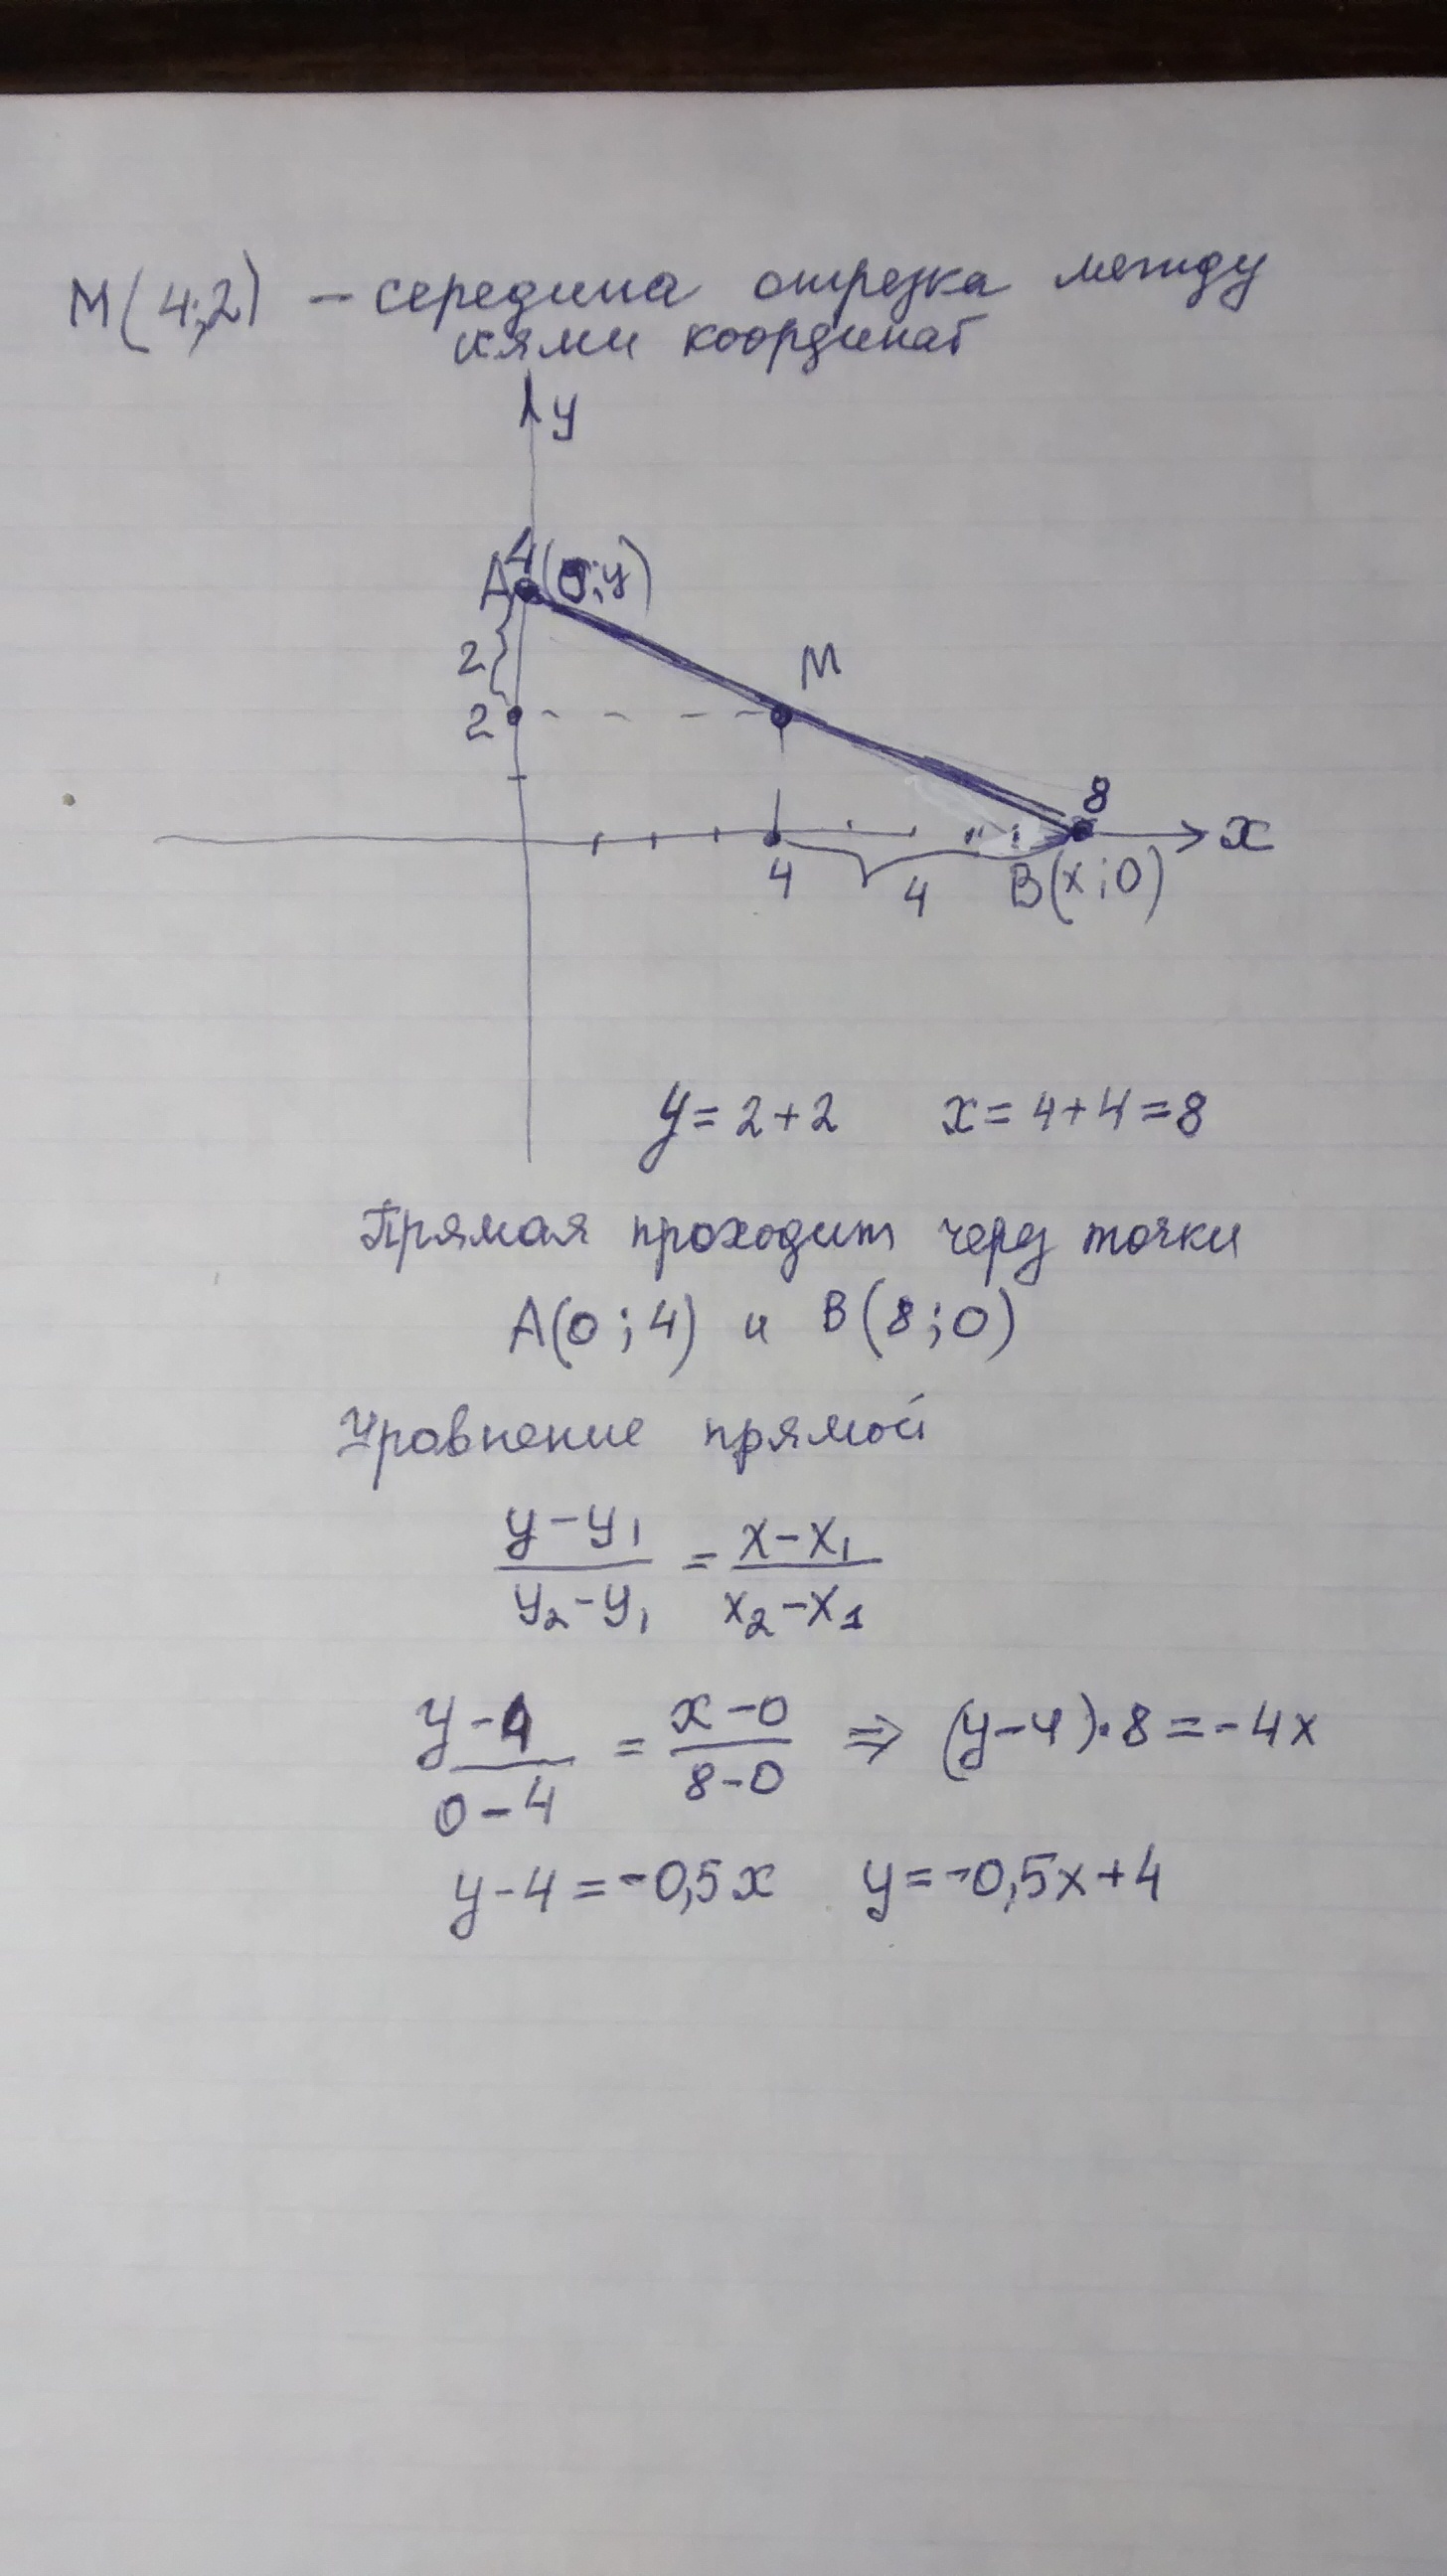 М(4;2) – середина отрезка между
осями координат
y
4
A (0;y)
2
M
2
8
x
4
4
B(x;0)
y = 2+2 x = 4+4 = 8
Прямая проходит через точки
A(0;4) и B(8;0)
Уравнение прямой
y-y₁ / y₂-y₁ = x-x₁ / x₂-x₁
y-4 / 0-4 = x-0 / 8-0 ⇒ (y-4)·8 = -4x
y-4 = -0,5x y = -0,5x+4